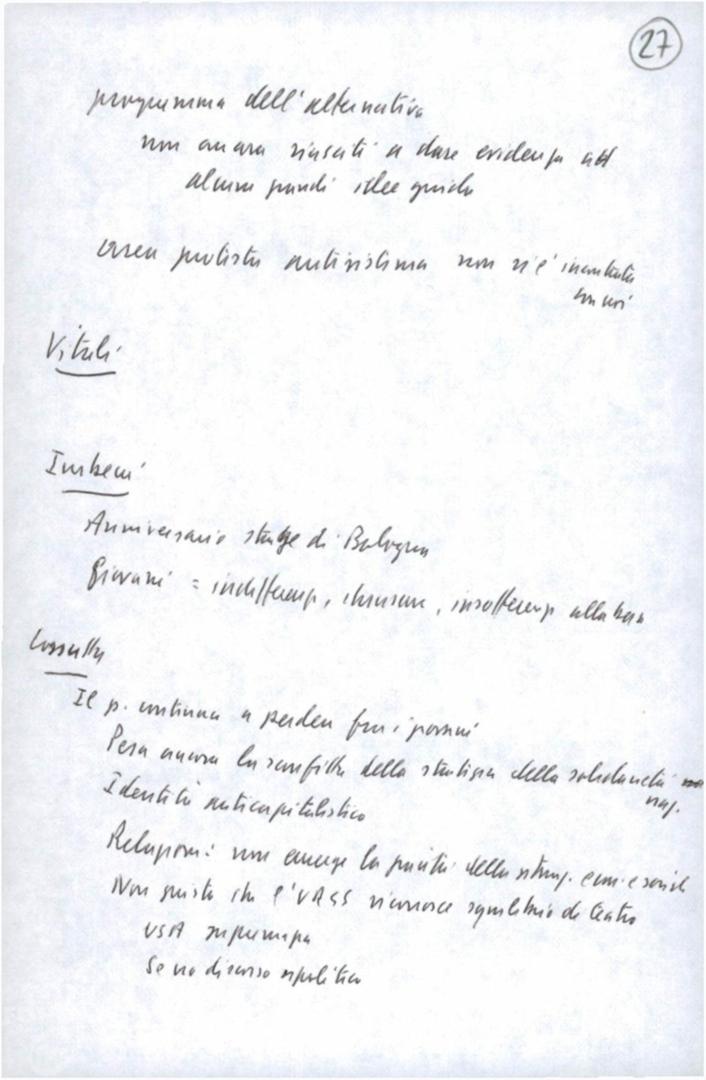 27
programma dell'alternativa
non ancora riusciti a dare evidenza ad
alcune grandi idee guida
area protesta antisistema non si è incontrata
con noi
Vitali
Imbeni
Anniversario strage di Bologna
Giovani = indifferenza, chiusure, insofferenza alla
Cossutta
Il p. continua a perdere fra i giovani
Pesa ancora la sconfitta della strategia della solidarietà
naz.
Identità anticapitalistica
Relazione: non emerge la gravità della situaz. econ. e sociale
Non giusto che l'URSS riconosce squilibrio di teatro
USA supremazia
Se no discorso